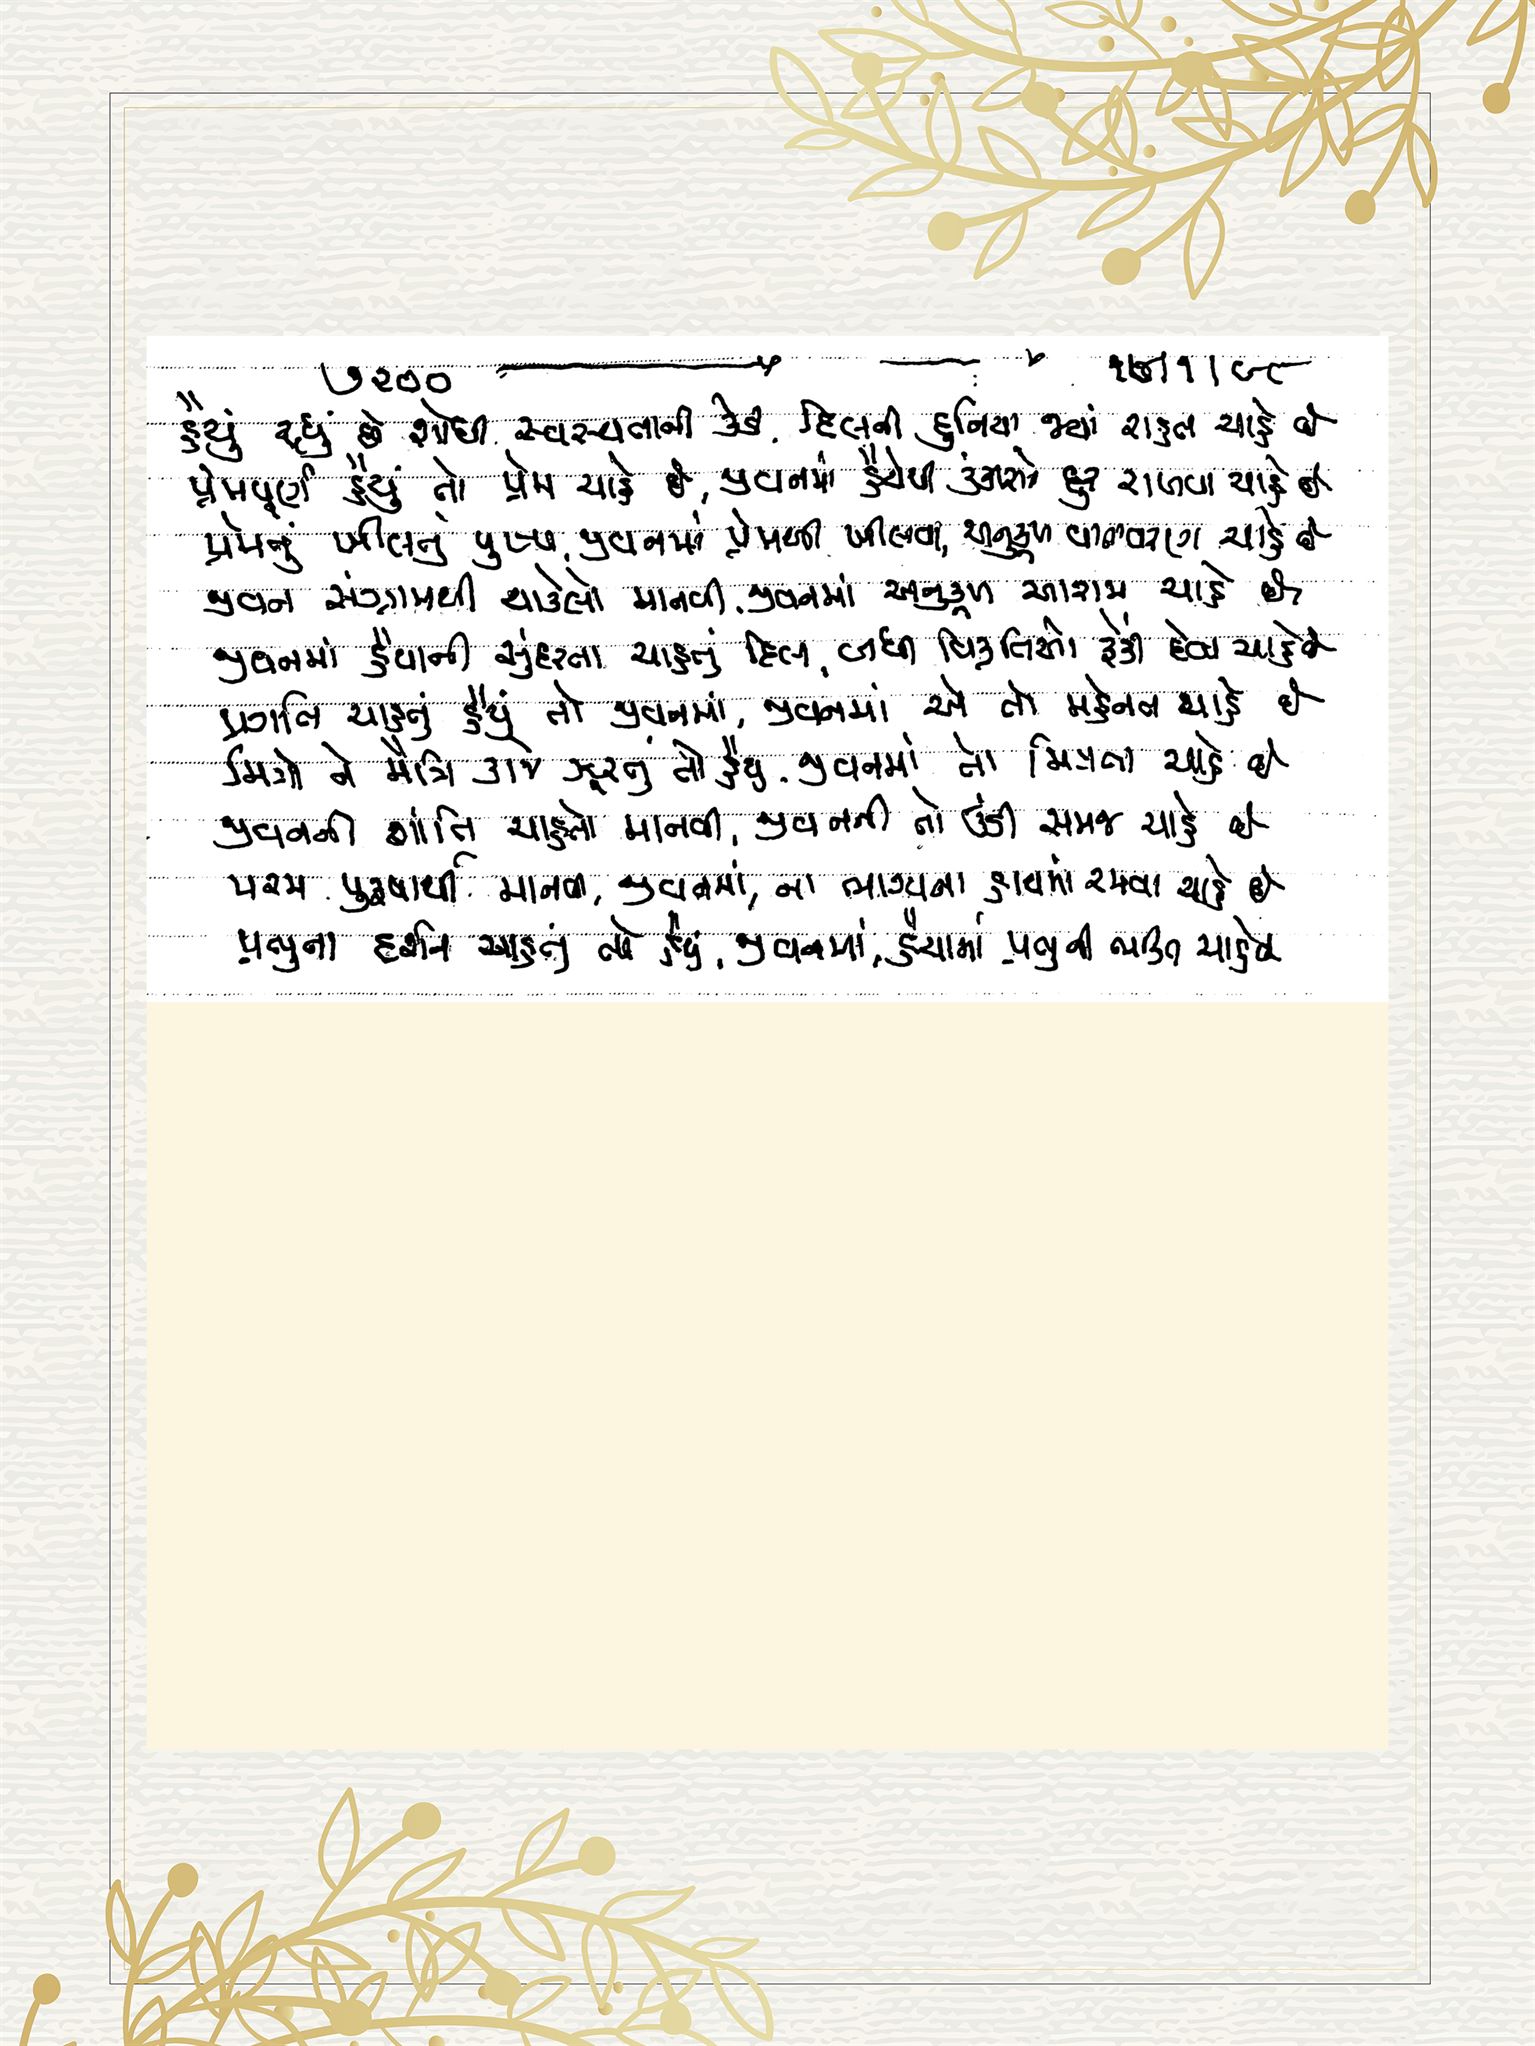 ૭૨૦૦ ૧૭/૧/૯૮
હૈયું રહ્યું છે શોધી સ્વસ્થતાની કેડી, દિલની દુનિયા જ્યાં રાહત ચાહે છે
પ્રેમપૂર્ણ હૈયું તો પ્રેમ ચાહે છે, જીવનમાં હૈયેથી કંકાશને દૂર રાખવા ચાહે છે
પ્રેમનું ખીલતું પુષ્પ, જીવનમાં પ્રેમથી ખીલવા, અનુકૂળ વાતાવરણ ચાહે છે
જીવન સંગ્રામથી થાકેલો માનવી, જીવનમાં અનુકૂળ આરામ ચાહે છે
જીવનમાં હૈયાની સુંદરતા ચાહતું દિલ, બધી વિકૃતિઓ ફેંકી દેવા ચાહે છે
પ્રગતિ ચાહતું હૈયું તો જીવનમાં, જીવનમાં એ તો મહેનત ચાહે છે
મિત્રો ને મૈત્રિ કાજે ઝૂરતું તો હૈયું, જીવનમાં તો મિત્રતા ચાહે છે
જીવનની શાંતિ ચાહતો માનવી, જીવનની તો ઉંડી સમજ ચાહે છે
પરમ પુરૂષાર્થી માનવી, જીવનમાં, ના ભાગ્યના હાથમાં રમવા ચાહે છે
પ્રભુના દર્શન ચાહતું તો હૈયું, જીવનમાં, હૈયામાં પ્રભુની ભક્તિ ચાહે છે